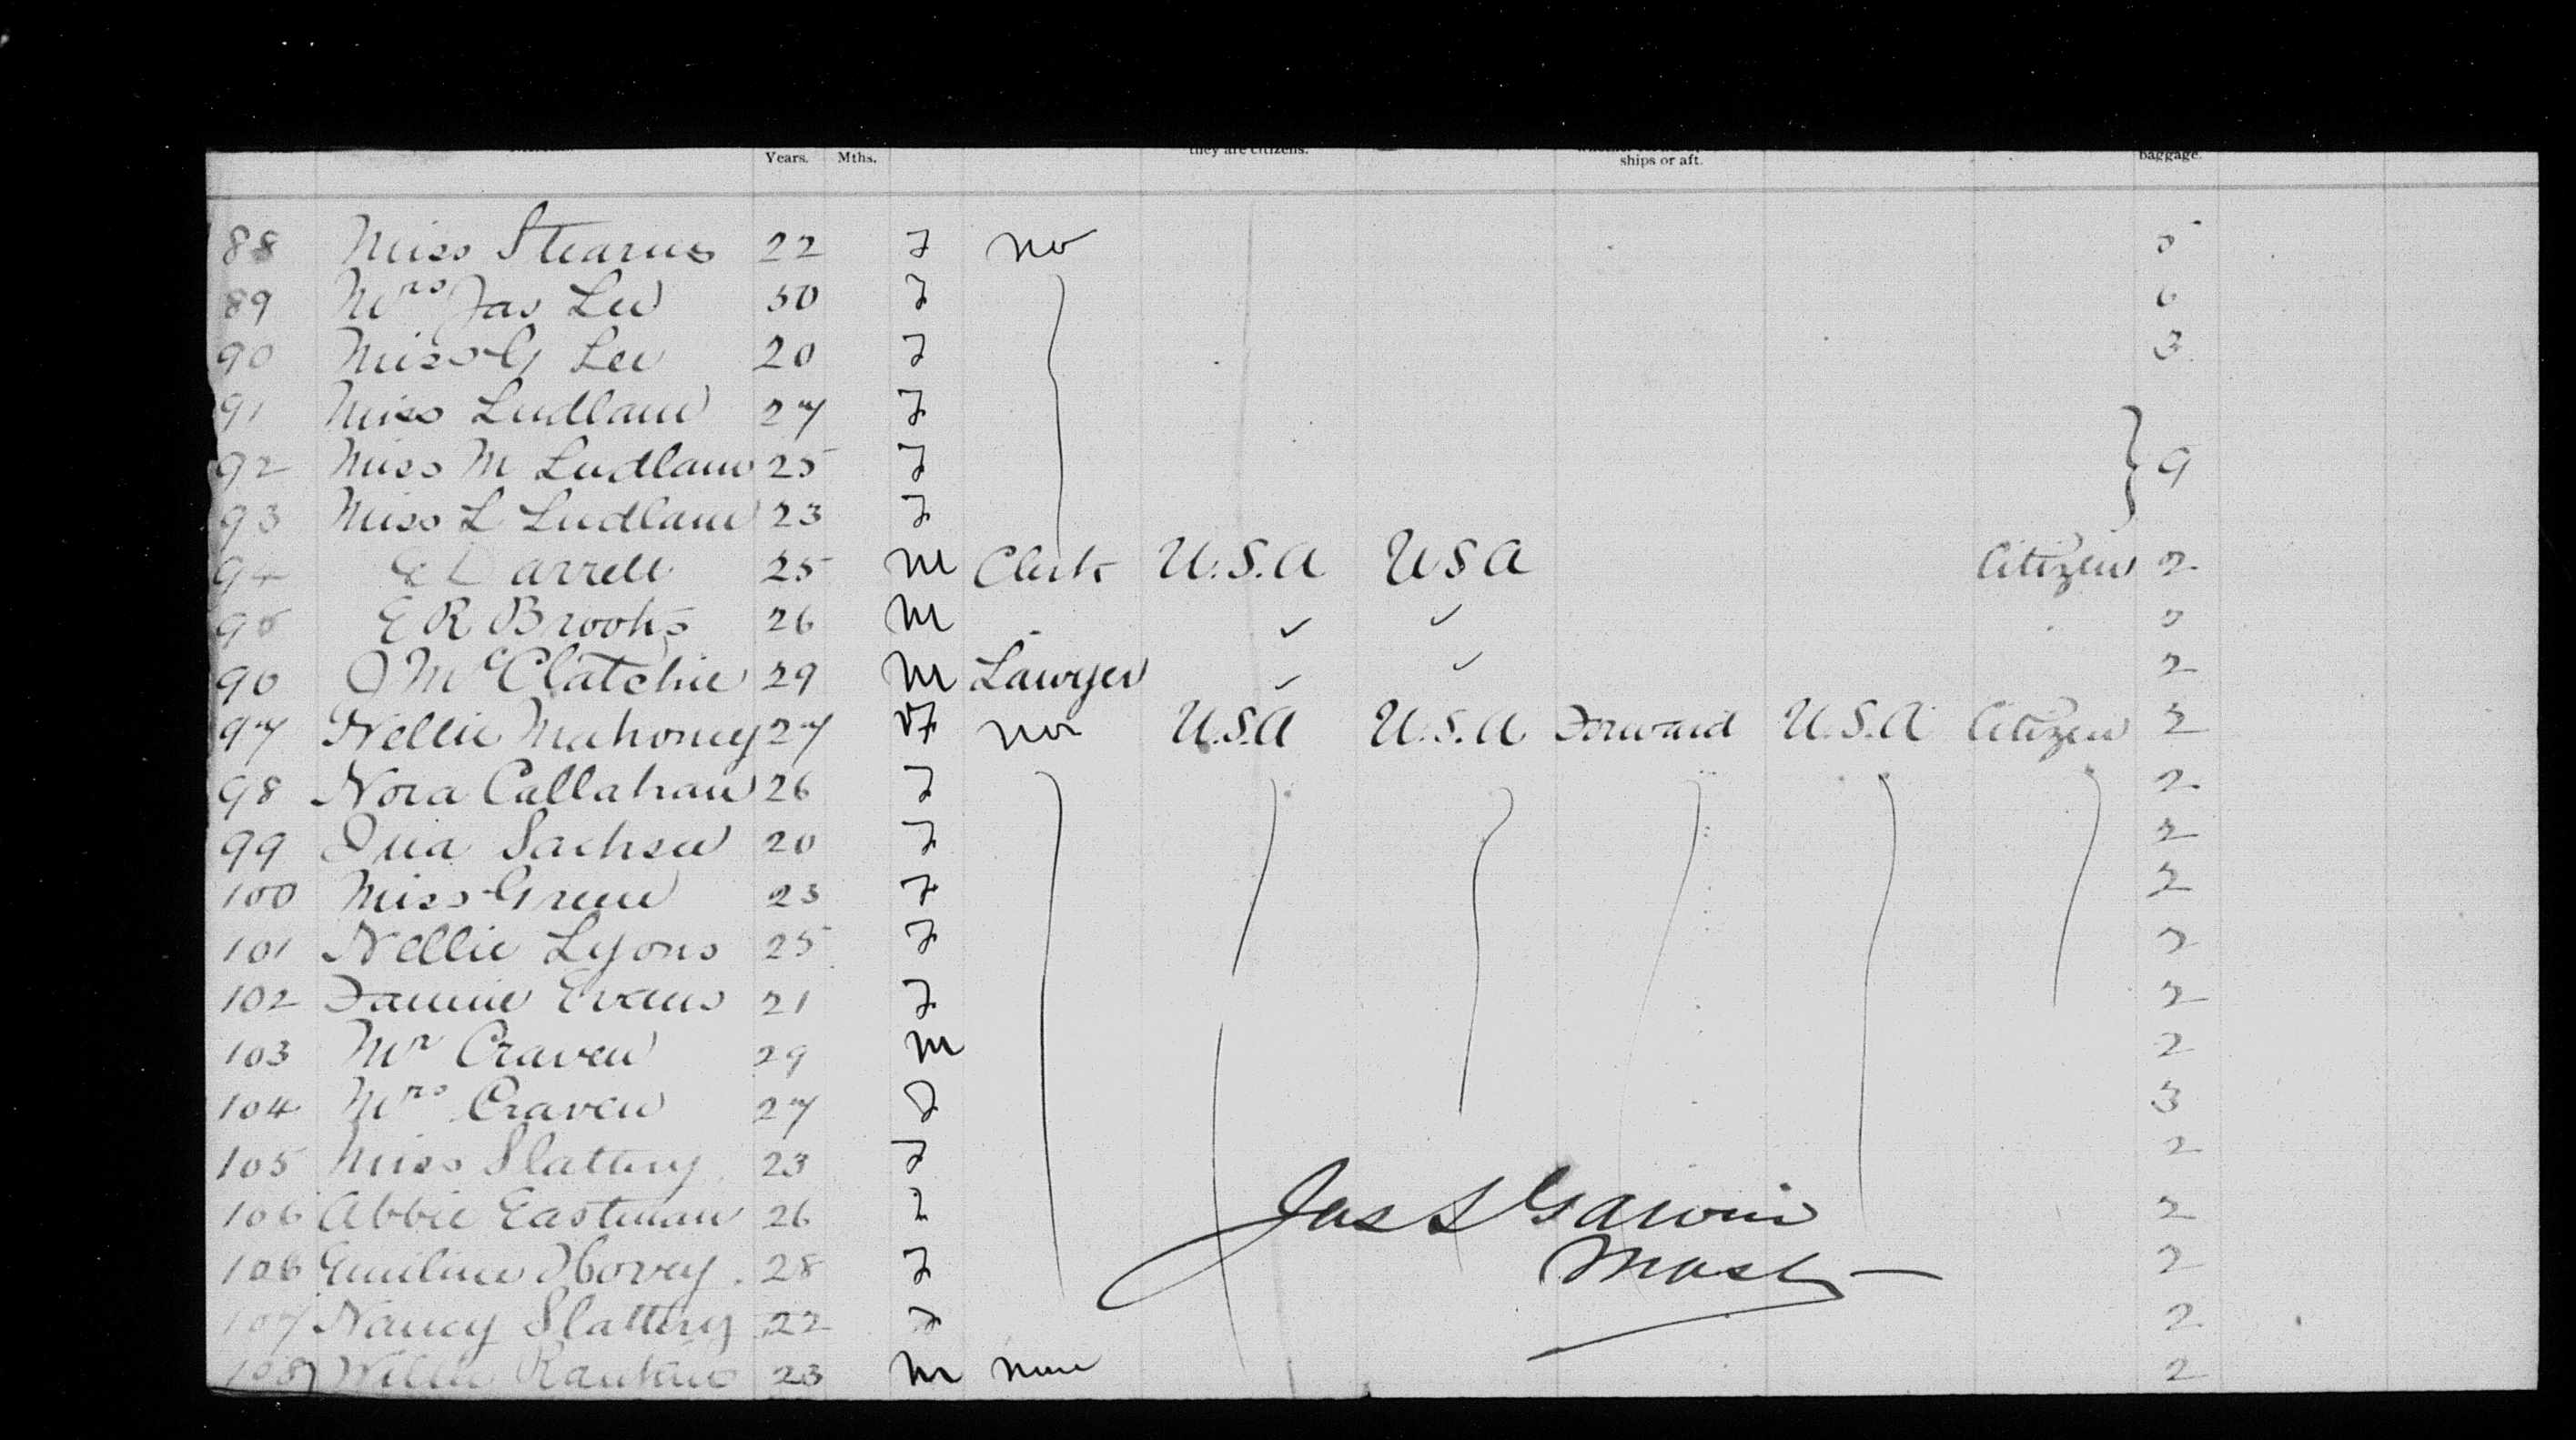 Years. Mths. they are citizens. ships or aft. baggage.
88 Miss Stearns 22 F no 5
89 Mrs Jas Lee 50 F 6
90 Miss G Lee 20 F 3
91 Miss Ludlam 27 F
92 Miss M Ludlam 25 F 9
93 Miss L Ludlam 23 F
94 E Darrell 25 M Clerk U.S.A U S A Citizen 2
95 E R Brooks 26 M 2
96 J McClatchie 29 M Lawyer 2
97 Nellie Mahoney 27 F no U.S.A U.S.A Forward U.S.A Citizen 2
98 Nora Callahan 26 F 2
99 Sachse 20 F 2
100 Miss Green 23 F 2
101 Nellie Lyons 25 F 2
102 Fannie Evans 21 F 2
103 Mr Craven 29 M 2
104 Mrs Craven 27 F 3
105 Miss Slattery 23 F 2
106 Abbie Eastman 26 F 2
106 Emiline Hovey 28 F 2
107 Nancy Slattery 22 F 2
108 Willie Rankin 23 M None 2
Jas S Garvin
Mast